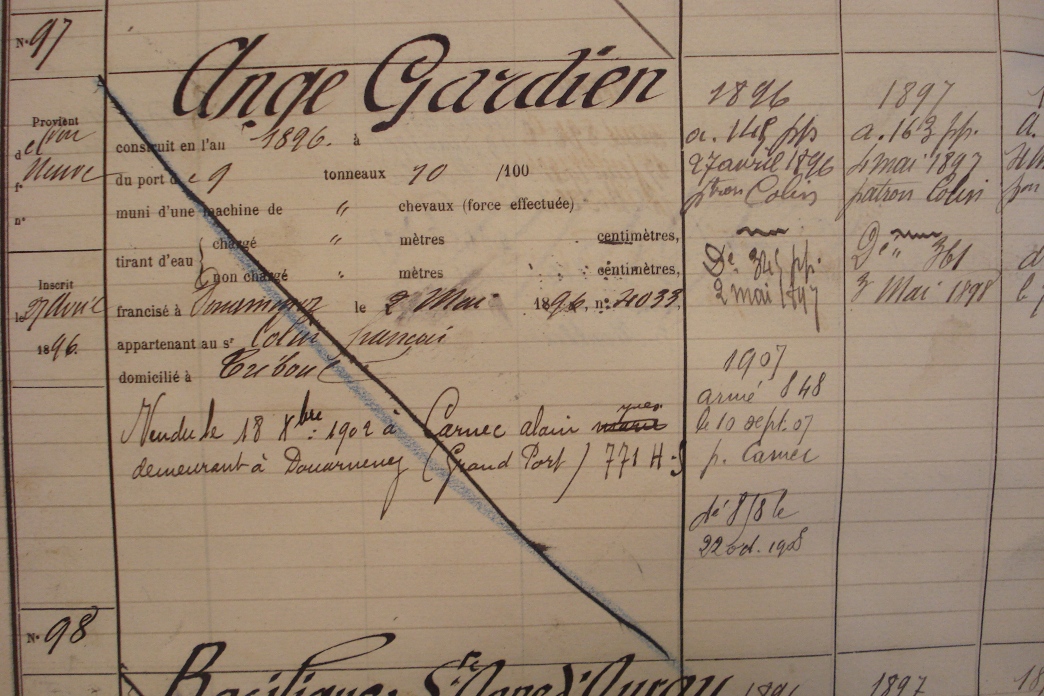 N° 97
Ange Gardien
Provient
d
Neuve
f.
n°
construit en l'an 1896. à
du port de 9 tonneaux 70 /100
muni d'une machine de " chevaux (force effectuée)
tirant d'eau { chargé " mètres centimètres,
non chargé " mètres centimètres,
Inscrit
le 27 Avril
1896.
francisé à Douarnenez le 2 Mai 1896, n° 4033.
appartenant au sr Colin françois
domicilié à Tréboul
Vendu le 18 Xbre 1902 à Carnec alain yves
demeurant à Douarnenez (Grand Port) 771 H-S
1896
a. 148 pp
27 avril 1896
ptron Colin
Dé 345 pp.
2 mai 1897
1907
armé 848
le 10 sept. 07
p. Carnec
dé 878 le
22 oct. 1908
1897
a. 163 pp.
4 mai 1897
patron Colin
Dé " 361
3 Mai 1898
N° 98
Basilique Ste Anne d'Auray
1896 1897